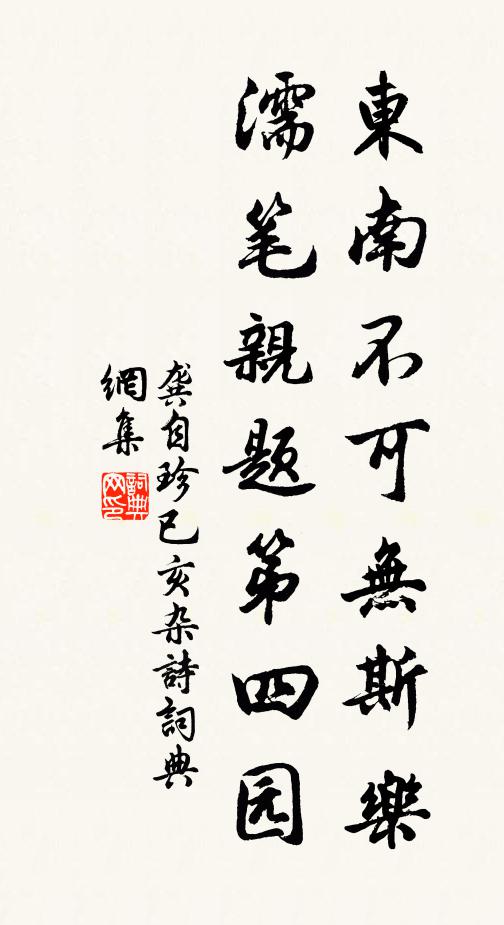 東南不可無斯樂
濡笔親題第四园
龚自珍己亥杂詩詞典
網集
詞典网印